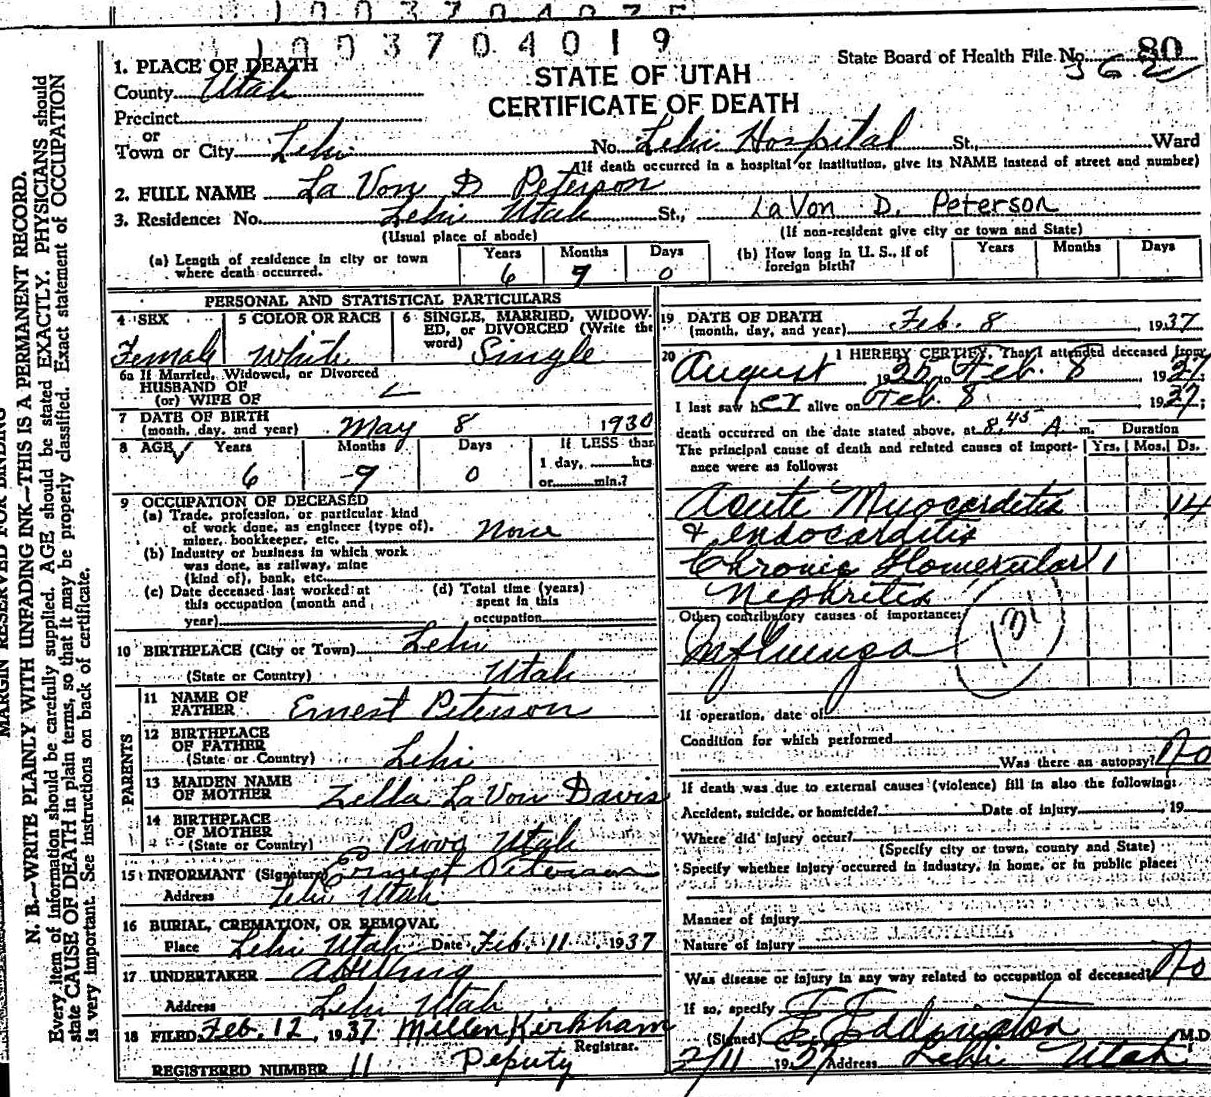 1003704019
State Board of Health File No. 80
362
STATE OF UTAH
CERTIFICATE OF DEATH
1. PLACE OF DEATH
County Utah
Precinct
or
Town or City Lehi No. Lehi Hospital St., Ward
(If death occurred in a hospital or institution, give its NAME instead of street and number)
2. FULL NAME La Von D Peterson
3. Residence: No. Lehi Utah St., LaVon D. Peterson
(Usual place of abode) (If non-resident give city or town and State)
(a) Length of residence in city or town where death occurred. Years 6 Months 9 Days 0
(b) How long in U. S., if of foreign birth? Years Months Days
PERSONAL AND STATISTICAL PARTICULARS
4 SEX Female
5 COLOR OR RACE White
6 SINGLE, MARRIED, WIDOWED, or DIVORCED (Write the word) Single
6a If Married, Widowed, or Divorced
HUSBAND OF
(or) WIFE OF
7 DATE OF BIRTH
(month, day, and year) May 8 1930
8 AGE Years 6 Months 9 Days 0 If LESS than 1 day, hrs or min.?
9 OCCUPATION OF DECEASED
(a) Trade, profession, or particular kind
of work done, as engineer (type of),
miner, bookkeeper, etc. None
(b) Industry or business in which work
was done, as railway, mine
(kind of), bank, etc.
(c) Date deceased last worked at this occupation (month and year)
(d) Total time (years) spent in this occupation
10 BIRTHPLACE (City or Town) Lehi
(State or Country) Utah
PARENTS
11 NAME OF FATHER Ernest Peterson
12 BIRTHPLACE OF FATHER
(State or Country) Lehi
13 MAIDEN NAME OF MOTHER Zella LaVon Davis
14 BIRTHPLACE OF MOTHER
(State or Country) Provo Utah
15 INFORMANT (Signature) Ernest Peterson
Address Lehi Utah
16 BURIAL, CREMATION, OR REMOVAL
Place Lehi Utah Date Feb. 11 1937
17 UNDERTAKER
Address Lehi Utah
18 FILED Feb. 12, 1937 Millen Kirkham
Registrar.
REGISTERED NUMBER 11 Deputy
19 DATE OF DEATH
(month, day, and year) Feb. 8, 1937
20 I HEREBY CERTIFY, That I attended deceased from
August 1935 to Feb. 8, 1937
I last saw her alive on Feb. 8 1937;
death occurred on the date stated above, at 8.45 A m. Duration
The principal cause of death and related causes of importance were as follows: Yrs. Mos. Ds.
Acute Myocarditis 14
& endocarditis
Chronic Glomerular 1
Nephritis
Other contributory causes of importance:
Influenza 131
If operation, date of
Condition for which performed
Was there an autopsy? No
If death was due to external causes (violence) fill in also the following:
Accident, suicide, or homicide? Date of injury 19
Where did injury occur?
(Specify city or town, county and State)
Specify whether injury occurred in industry, in home, or in public place:
Manner of injury
Nature of injury
Was disease or injury in any way related to occupation of deceased? No
If so, specify
(Signed) E Eddington M.D.
2/11 1937 Address Lehi Utah
MARGIN RESERVED FOR BINDING
N. B.—WRITE PLAINLY WITH UNFADING INK—THIS IS A PERMANENT RECORD.
Every item of information should be carefully supplied. AGE should be stated EXACTLY. PHYSICIANS should
state CAUSE OF DEATH in plain terms, so that it may be properly classified. Exact statement of OCCUPATION
is very important. See instructions on back of certificate.